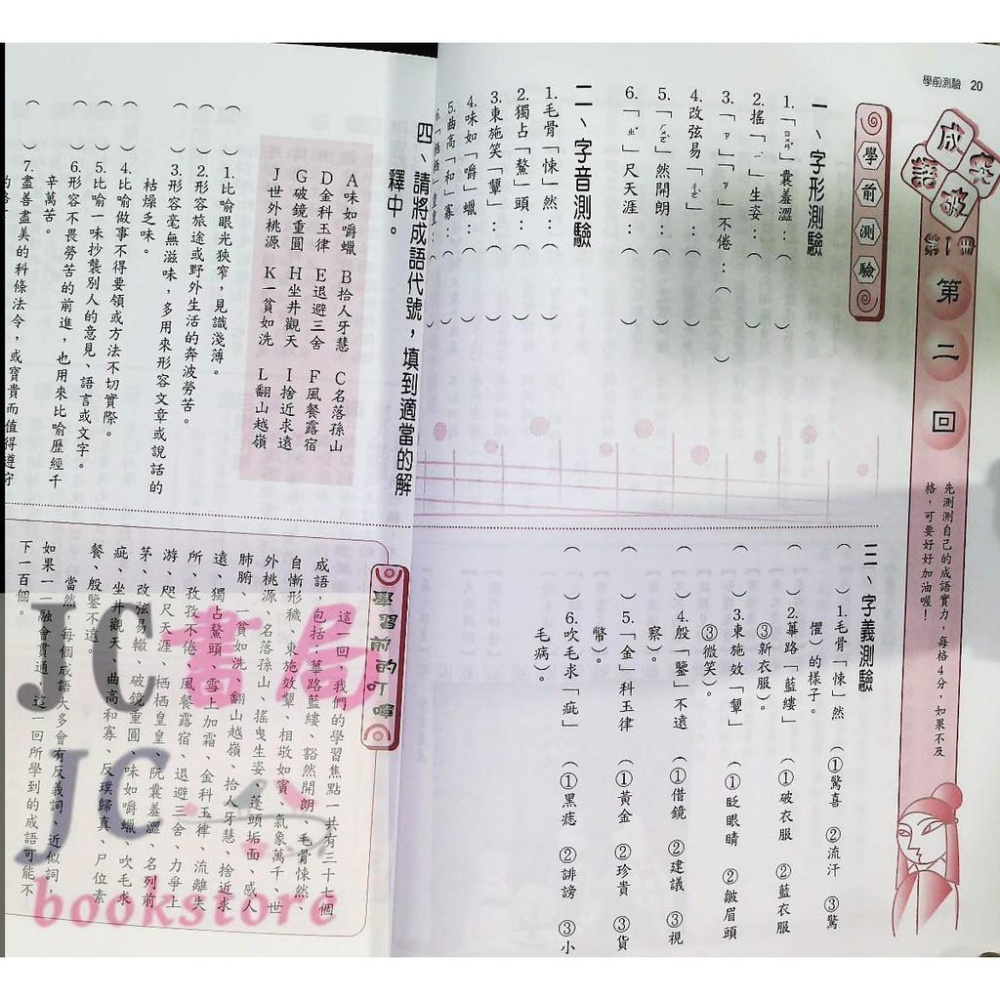 學前測驗 20
成語突破
第1冊
第二回
先測測自己的成語實力，每格4分，如果不及
格，可要好好加油喔！
學前測驗
一、字形測驗
1.「ㄖㄨㄢˇ」囊羞澀：（ ）
2.搖「ㄧˋ」生姿：（ ）
3.「ㄗ」「ㄗ」不倦：（ ）
4.改弦易「ㄔㄜˋ」：（ ）
5.「ㄏㄨㄛˋ」然開朗：（ ）
6.「ㄓˇ」尺天涯：（ ）
二、字音測驗
1.毛骨「悚」然：（ ）
2.獨占「鰲」頭：（ ）
3.東施笑「顰」：（ ）
4.味如「嚼」蠟：（ ）
5.曲高「和」寡：（ ）
三、字義測驗
（ ）1.毛骨「悚」然 （①驚喜 ②流汗 ③驚
懼）的樣子。
（ ）2.蓽路「藍縷」（①破衣服 ②藍衣服
③新衣服）。
（ ）3.東施效「顰」（①眨眼睛 ②皺眉頭
③微笑）。
（ ）4.殷「鑒」不遠 （①借鏡 ②建議 ③視
察）。
（ ）5.「金」科玉律 （①黃金 ②珍貴 ③貨
幣）。
（ ）6.吹毛求「疵」（①黑痣 ②誹謗 ③小
毛病）。
四、請將成語代號，填到適當的解
釋中。
A味如嚼蠟 B拾人牙慧 C名落孫山
D金科玉律 E退避三舍 F風餐露宿
G破鏡重圓 H坐井觀天 I捨近求遠
J世外桃源 K一貧如洗 L翻山越嶺
（ ）1.比喻眼光狹窄，見識淺薄。
（ ）2.形容旅途或野外生活的奔波勞苦。
（ ）3.形容毫無滋味，多用來形容文章或說話的
枯燥乏味。
（ ）4.比喻做事不得要領或方法不切實際。
（ ）5.比喻一味抄襲別人的意見、語言或文字。
（ ）6.形容不畏勞苦的前進，也用來比喻歷經千
辛萬苦。
（ ）7.盡善盡美的科條法令，或寶貴而值得遵守
學習前的叮嚀
這一回，我們的學習焦點一共有三十七個
成語，包括：蓽路藍縷、豁然開朗、毛骨悚然、
自慚形穢、東施效顰、相敬如賓、氣象萬千、世
外桃源、名落孫山、搖曳生姿、蓬頭垢面、感人
肺腑、一貧如洗、翻山越嶺、拾人牙慧、捨近求
遠、獨占鰲頭、雪上加霜、金科玉律、流離失
所、孜孜不倦、風餐露宿、退避三舍、力爭上
游、咫尺天涯、栖栖皇皇、阮囊羞澀、名列前
茅、改弦易轍、破鏡重圓、味如嚼蠟、吹毛求
疵、坐井觀天、曲高和寡、反璞歸真、尸位素
餐、殷鑒不遠。
當然，每個成語大多會有反義詞、近似詞，
如果一一融會貫通，這一回所學到的成語可能不
下一百個。
JC書局
JC
bookstore